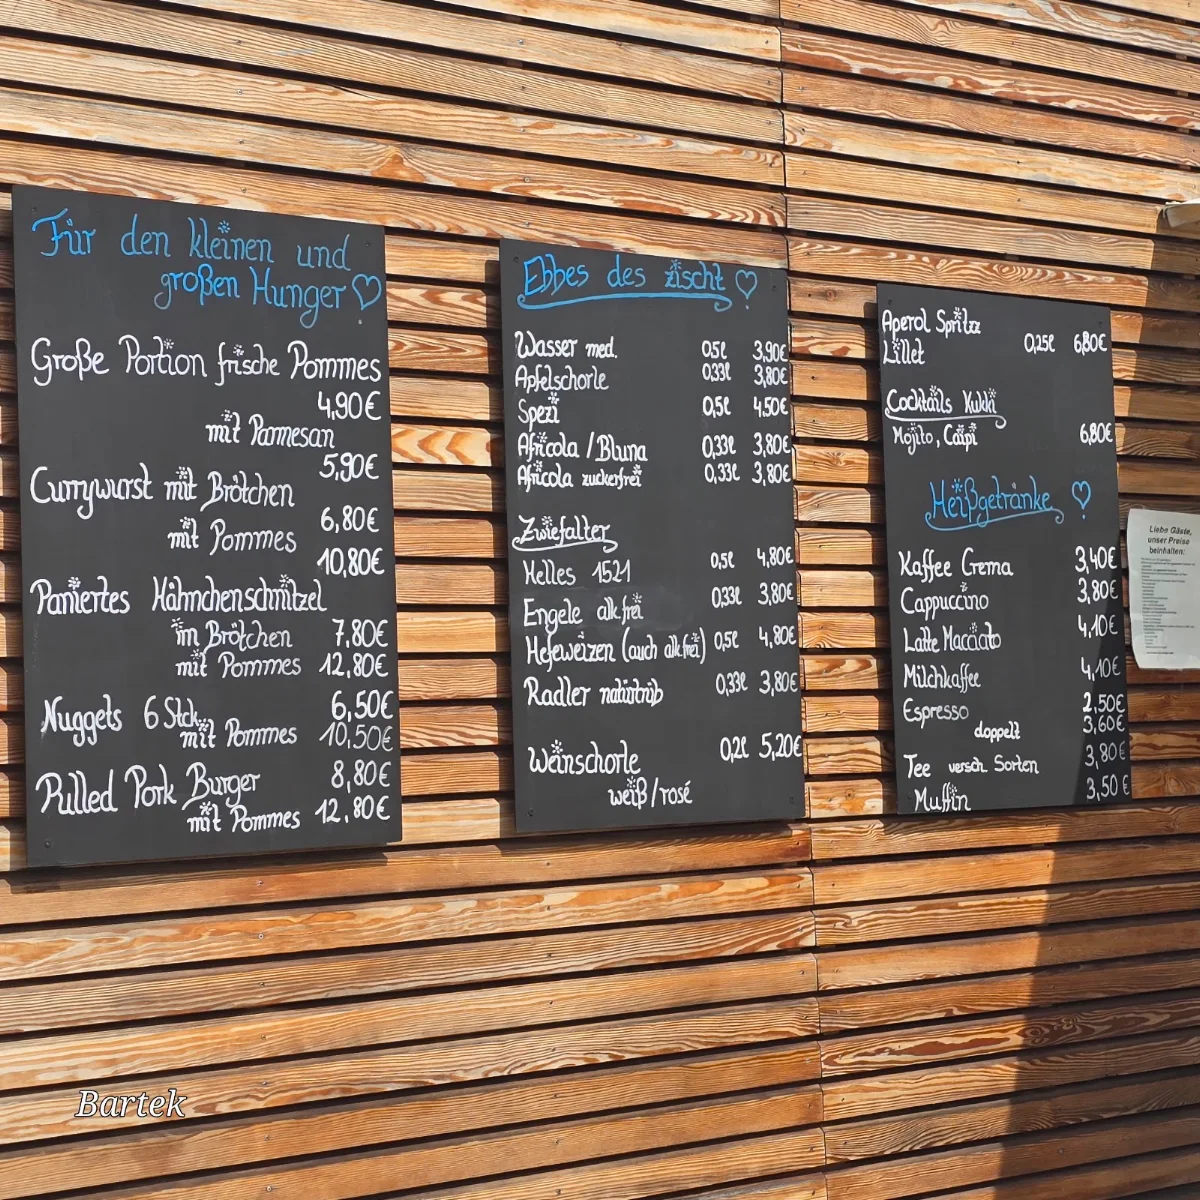 Für den kleinen und
großen Hunger
Große Portion frische Pommes
4,90€
mit Parmesan
5,90€
Currywurst mit Brötchen
6,80€
mit Pommes
10,80€
Paniertes Hähnchenschnitzel
im Brötchen 7,80€
mit Pommes 12,80€
Nuggets 6 Stck. 6,50€
mit Pommes 10,50€
Pulled Pork Burger 8,80€
mit Pommes 12,80€
Ebbes des zischt
Wasser med. 0,5l 3,90€
Apfelschorle 0,33l 3,80€
Spezi 0,5l 4,50€
Africola / Bluna 0,33l 3,80€
Africola zuckerfrei 0,33l 3,80€
Zwiefalter
Helles 1521 0,5l 4,80€
Engele alk.frei 0,33l 3,80€
Hefeweizen (auch alk.frei) 0,5l 4,80€
Radler naturtrüb 0,33l 3,80€
Weinschorle 0,2l 5,20€
weiß/rosé
Aperol Spritz
Lillet 0,25l 6,80€
Cocktails Kukki
Mojito, Caipi 6,80€
Heißgetränke
Kaffee Crema 3,40€
Cappuccino 3,80€
Latte Macciato 4,10€
Milchkaffee 4,10€
Espresso 2,50€
doppelt 3,60€
Tee versch. Sorten 3,80€
Muffin 3,50€
Liebe Gäste,
unser Preise
beinhalten:
Bartek